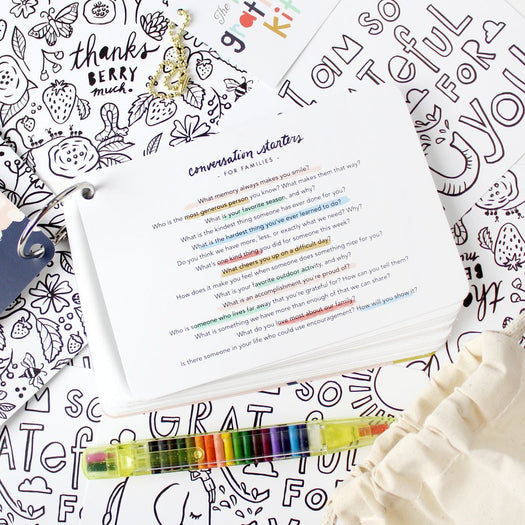 thanks
BERRY
much.
The
grati
kit
I AM SO
GRATEFUL
FOR
you
conversation starters
- FOR FAMILIES -
What memory always makes you smile?
Who is the most generous person you know? What makes them that way?
What is your favorite season, and why?
What is the kindest thing someone has ever done for you?
What is the hardest thing you've ever learned to do?
Do you think we have more, less, or exactly what we need? Why?
What's one kind thing you did for someone this week?
What cheers you up on a difficult day?
How does it make you feel when someone does something nice for you?
What is your favorite outdoor activity, and why?
What is an accomplishment you're proud of?
Who is someone who lives far away that you're grateful for? How can you tell them?
What is something we have more than enough of that we can share?
What do you love most about our family? How will you show it?
Is there someone in your life who could use encouragement?
thanks
SO
GRAT
FOR